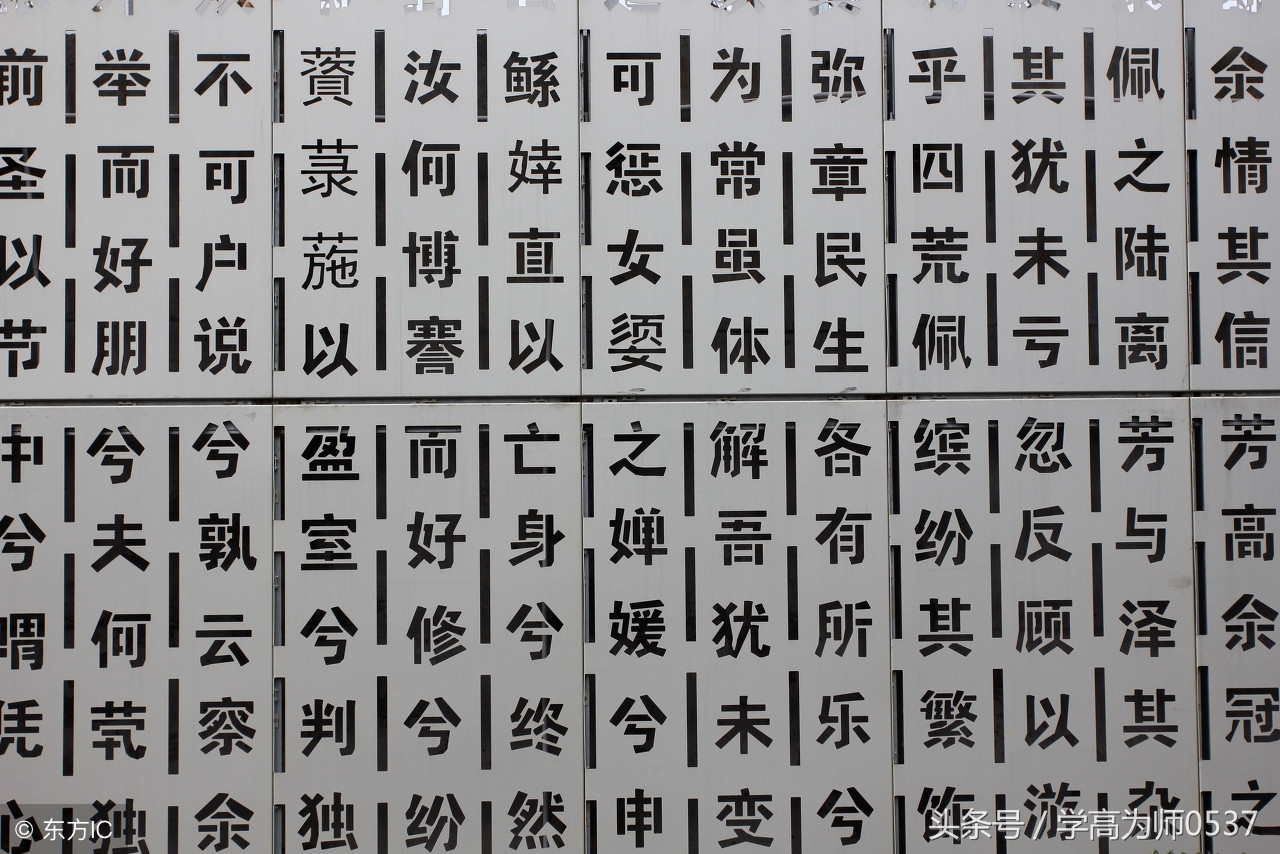 余情其信芳高余冠之
佩之陆离芳与泽其杂
其犹未亏忽反顾以游
乎四荒佩缤纷其繁饰
弥章民生各有所乐兮
为常虽体解吾犹未变
可惩女媭之婵媛兮申
鲧婞直以亡身兮终然
汝何博謇而好修兮纷
薋菉葹以盈室兮判独
不可户说兮孰云察余
举而好朋兮夫何茕独
前圣以节中兮喟凭心
© 东方IC
头条号 / 学高为师0537